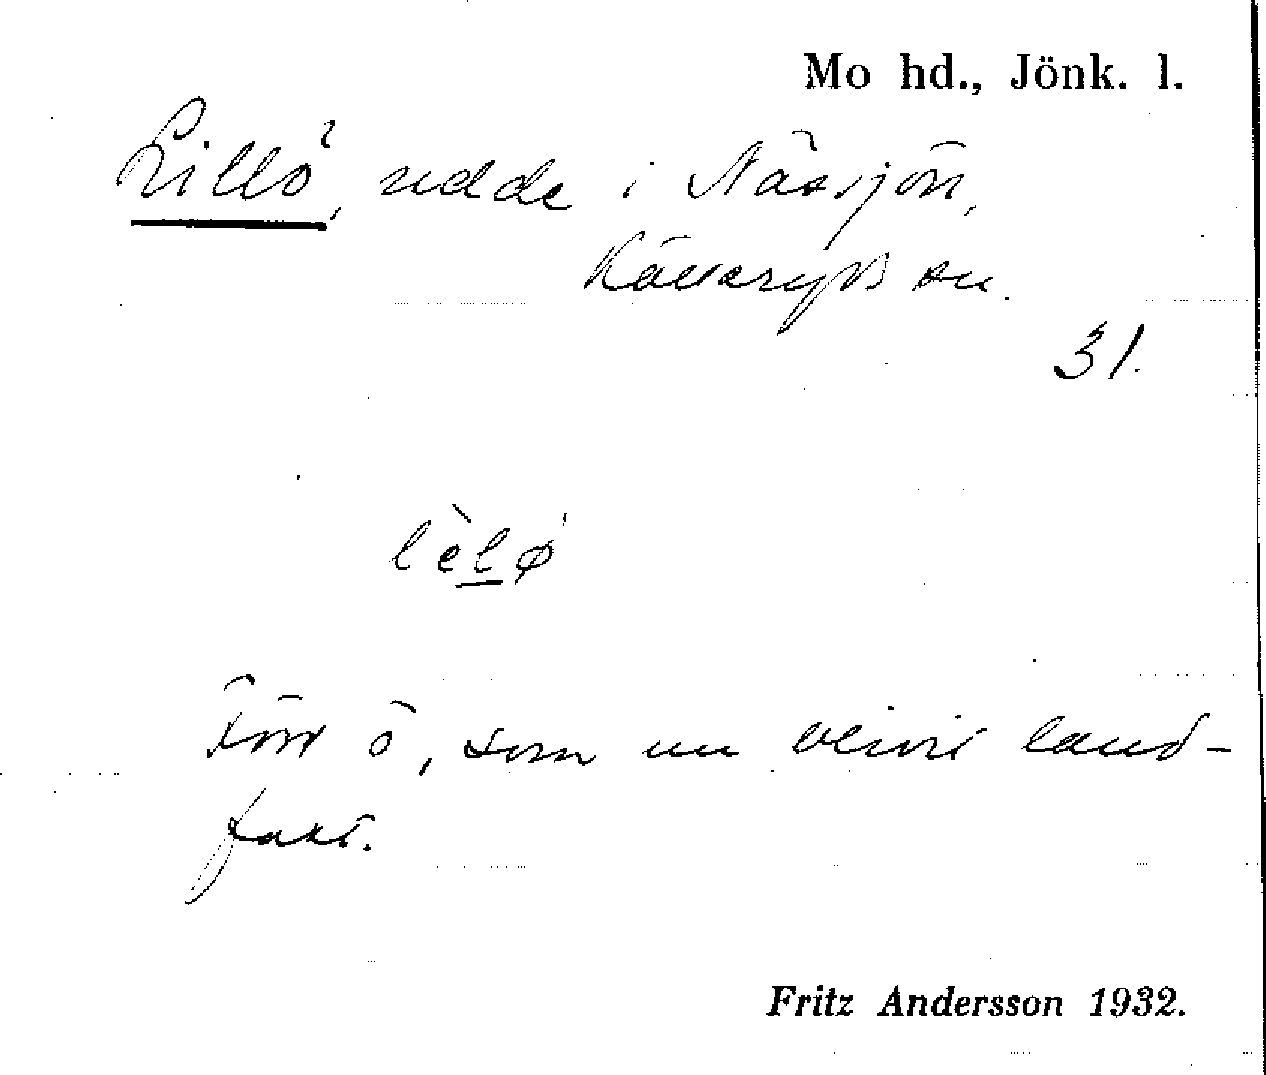 Mo hd., Jönk. l.
Lillö, udde i Nässjön,
Källeryds sn.
31.
lèlø
Förr ö, som nu blivit land-
fast.
Fritz Andersson 1932.